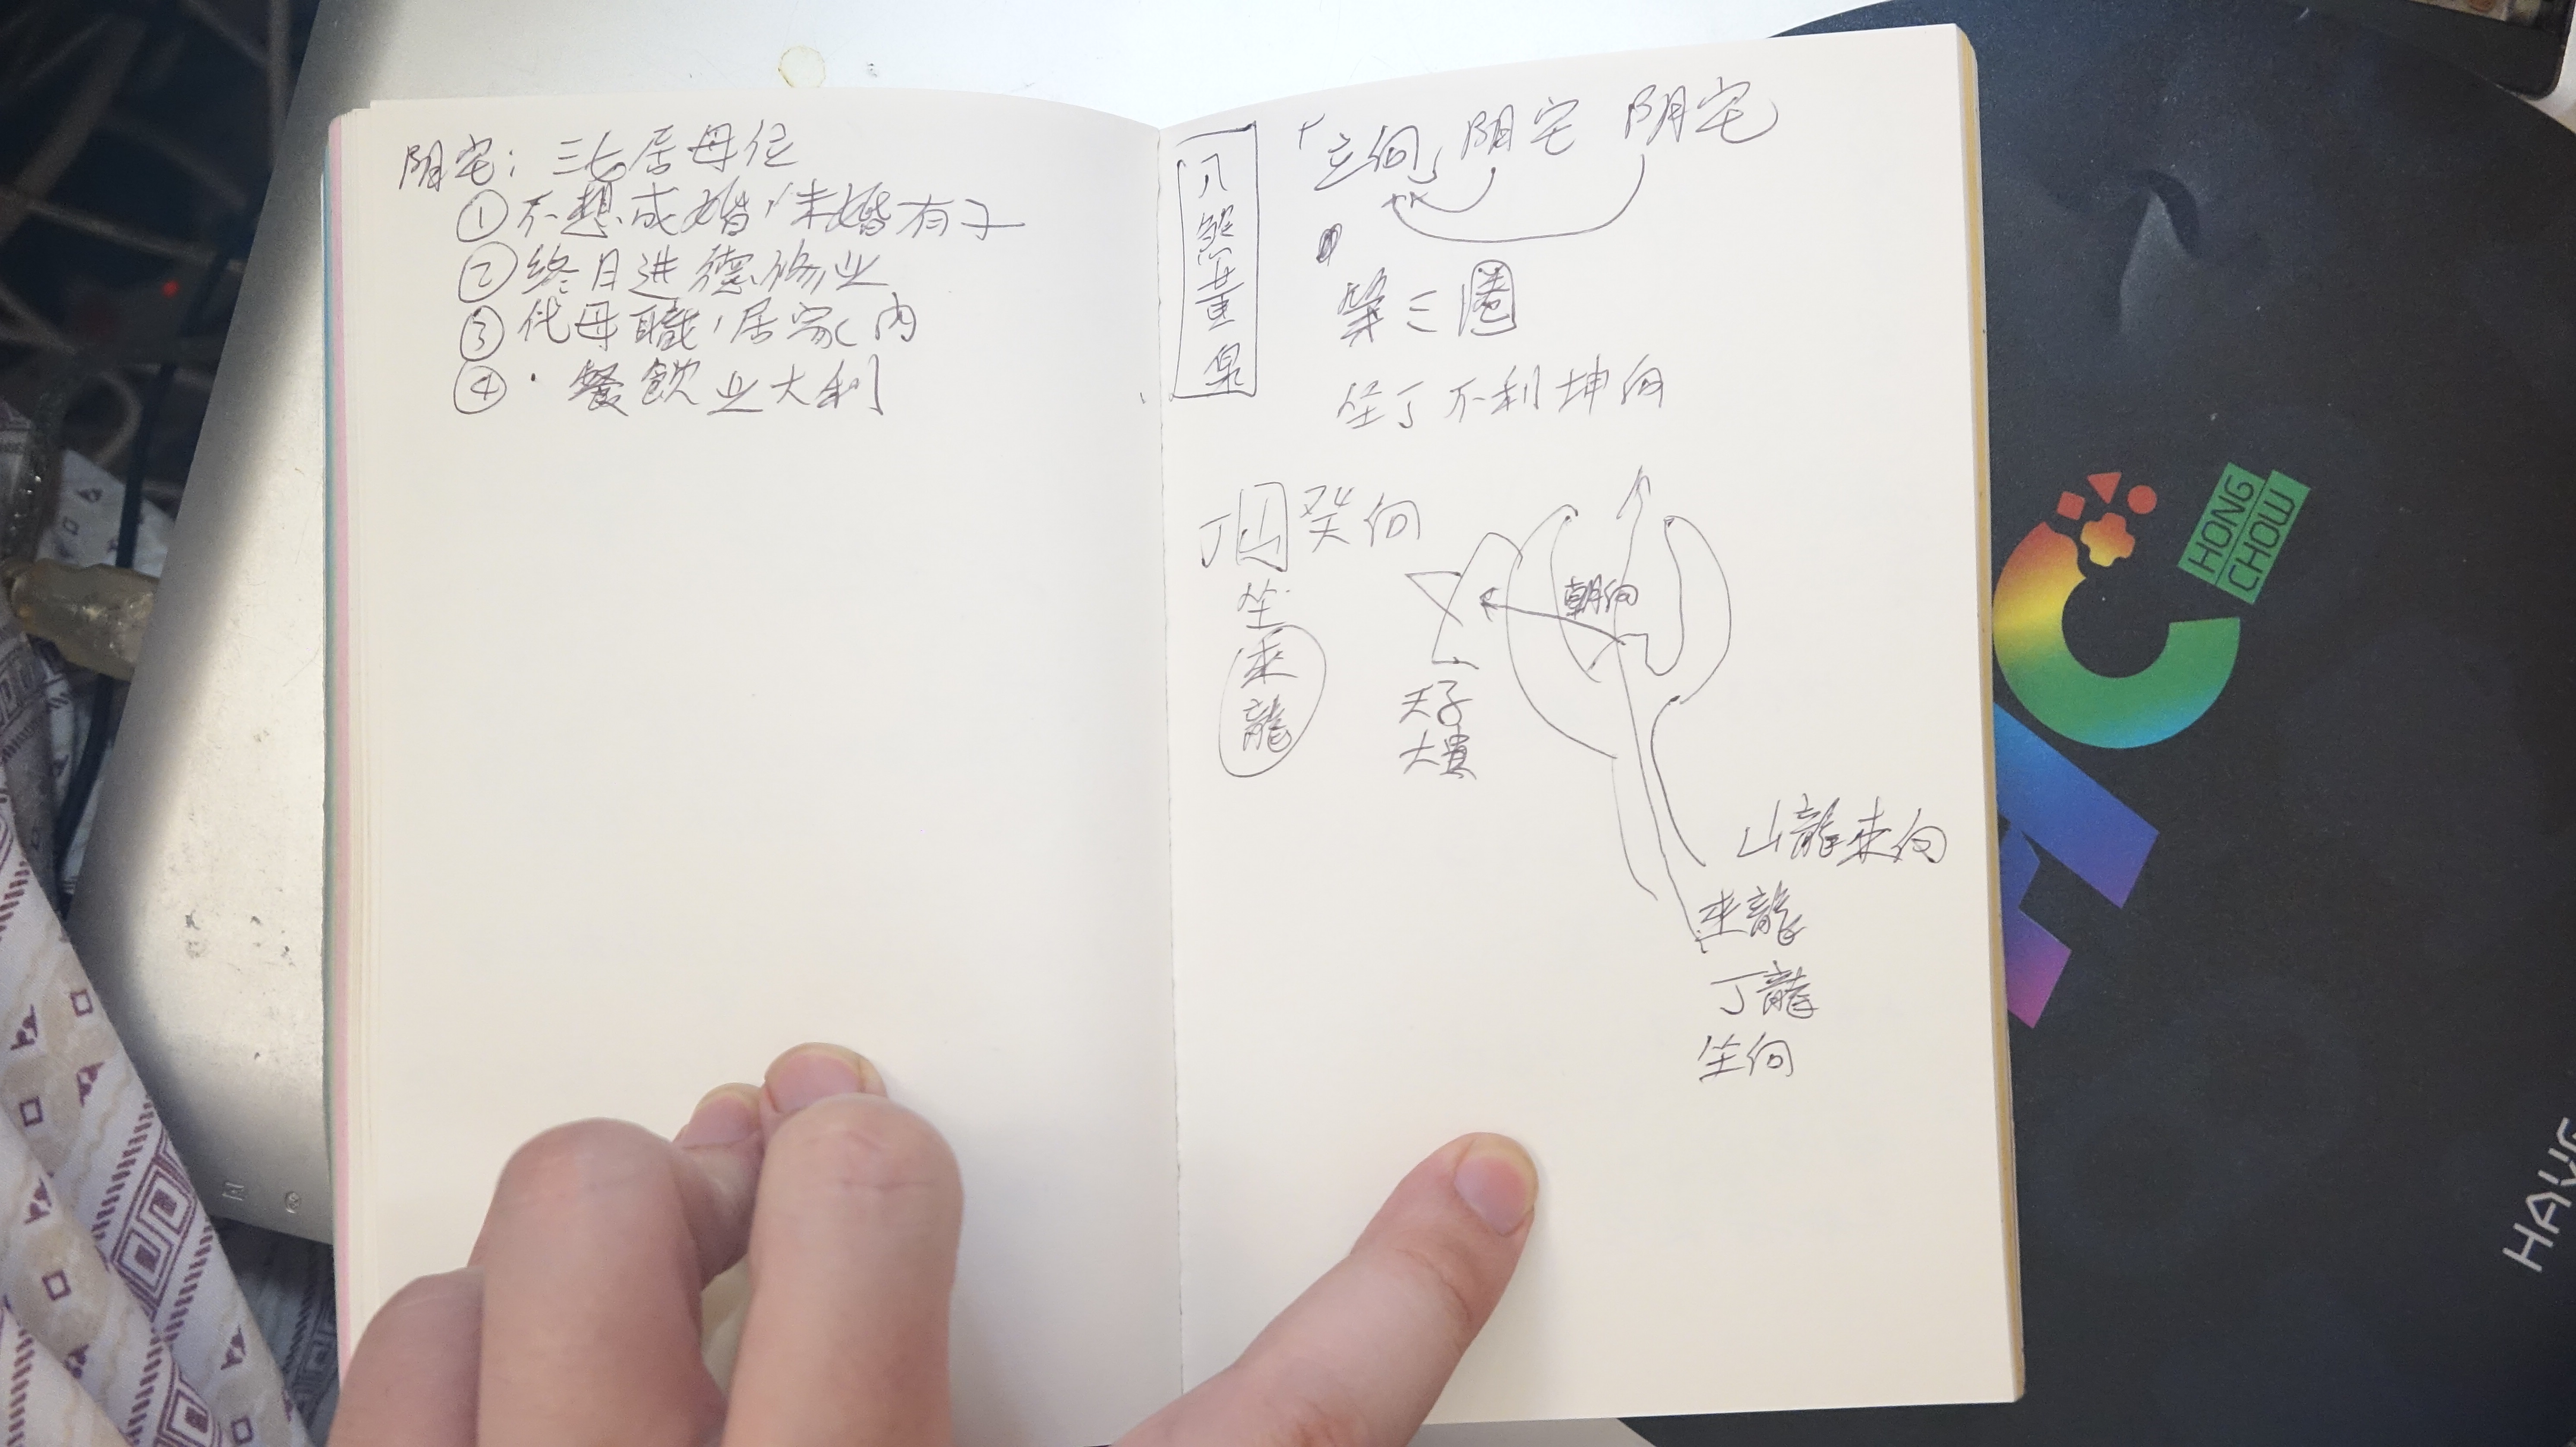 阴宅：三七居母位
①不想成婚，未婚有子
②终日进德修业
③代母職，居家内
④·餐飲业大利
八煞黄泉
「立向」阴宅 阴宅
第三圈
坐丁不利坤向
丁山癸向
坐
来龍
朝向
天子
大貴
山龍来向
来龍
丁龍
坐向
HONG
CHOW
HC